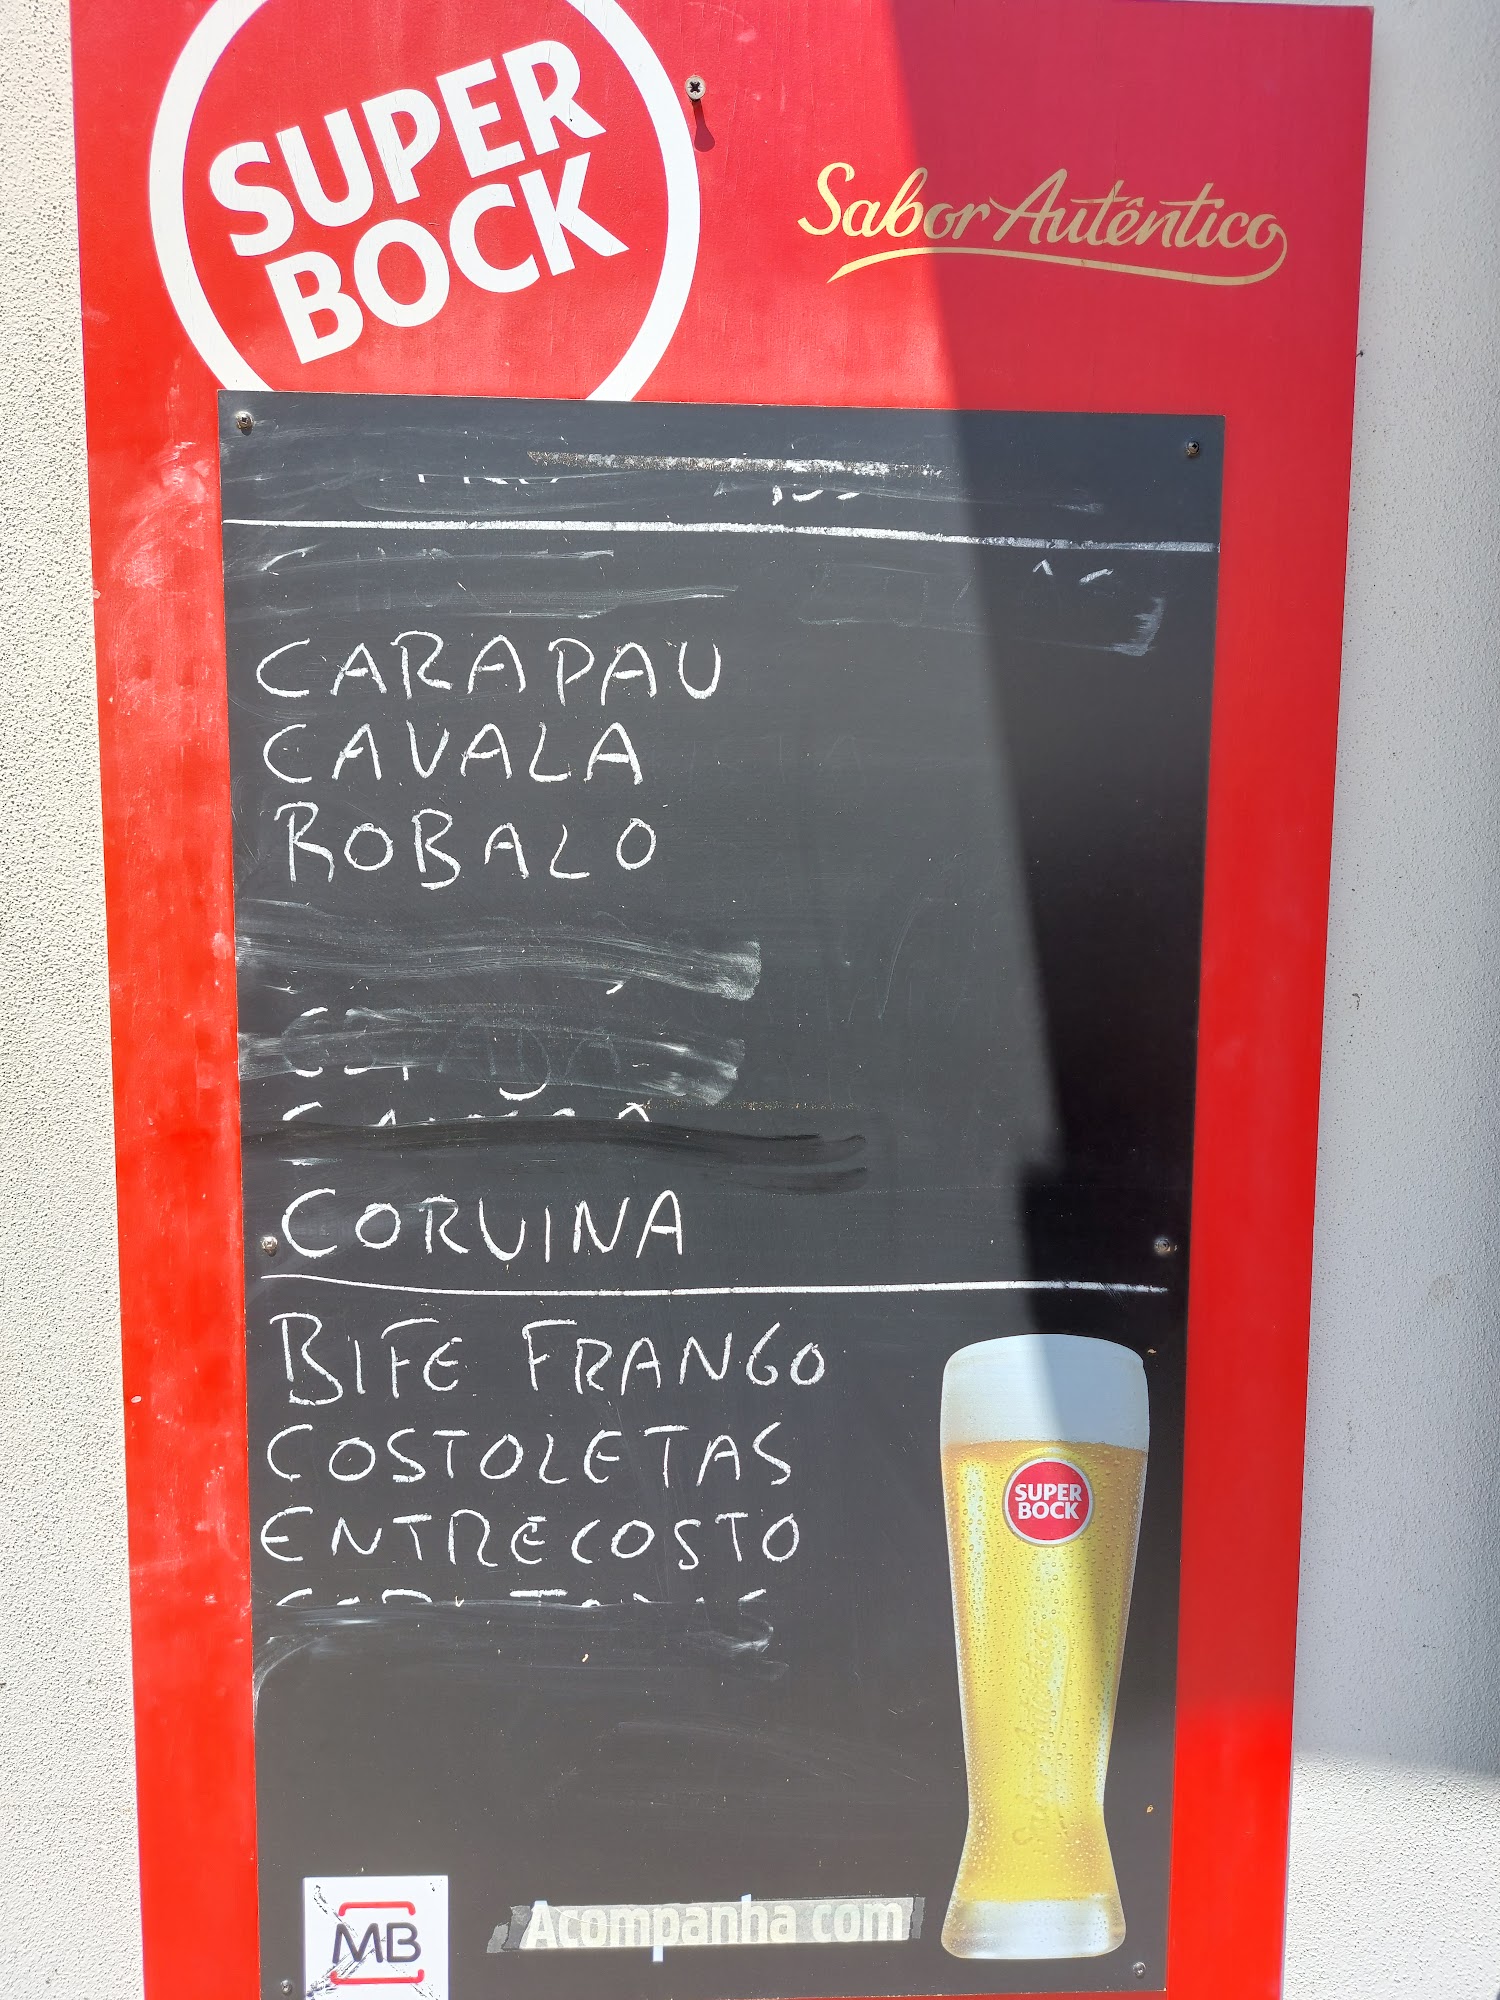 SUPER
BOCK
Sabor Autêntico
CARAPAU
CAVALA
ROBALO
CORVINA
BIFE FRANGO
COSTOLETAS
ENTRECOSTO
SUPER
BOCK
MB
Acompanha com